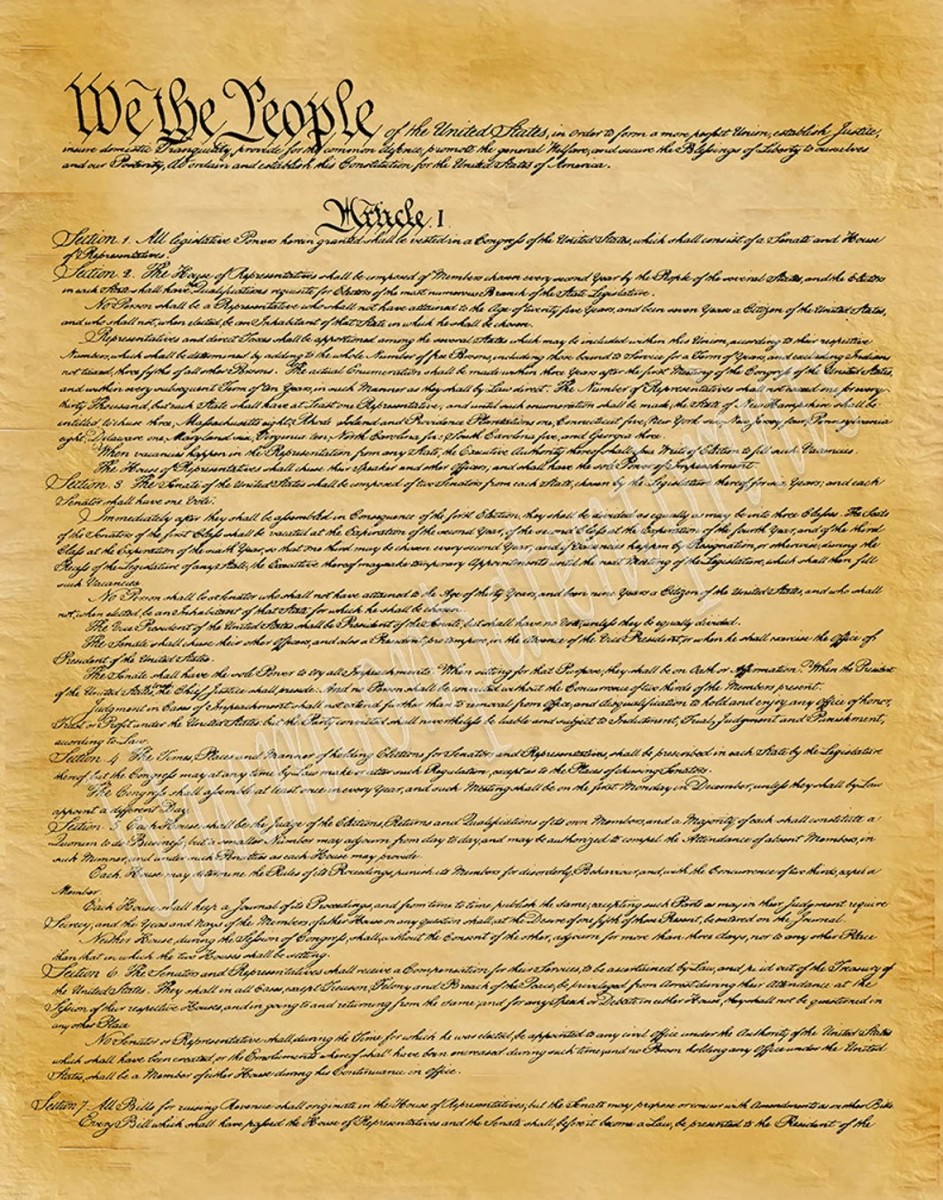 We the People of the United States, in order to form a more perfect Union, establish Justice,
insure domestic Tranquility, provide for the common defence, promote the general Welfare, and secure the Blessings of Liberty to ourselves
and our Posterity, do ordain and establish this Constitution for the United States of America.
Article. I
Section 1. All legislative Powers herein granted shall be vested in a Congress of the United States, which shall consist of a Senate and House
of Representatives.
Section 2. The House of Representatives shall be composed of Members chosen every second Year by the People of the several States, and the Electors
in each State shall have Qualifications requisite for Electors of the most numerous Branch of the State Legislature.
No Person shall be a Representative who shall not have attained to the Age of twenty five Years, and been seven Years a Citizen of the United States,
and who shall not, when elected, be an Inhabitant of that State in which he shall be chosen.
Representatives and direct Taxes shall be apportioned among the several States which may be included within this Union, according to their respective
Numbers, which shall be determined by adding to the whole Number of free Persons, including those bound to Service for a Term of Years, and excluding Indians
not taxed, three fifths of all other Persons. The actual Enumeration shall be made within three Years after the first Meeting of the Congress of the United States,
and within every subsequent Term of ten Years, in such Manner as they shall by Law direct. The Number of Representatives shall not exceed one for every
thirty Thousand, but each State shall have at Least one Representative; and until such enumeration shall be made, the State of New Hampshire shall be
entitled to chuse three, Massachusetts eight, Rhode Island and Providence Plantations one, Connecticut five, New York six, New Jersey four, Pennsylvania
eight, Delaware one, Maryland six, Virginia ten, North Carolina five, South Carolina five, and Georgia three.
When vacancies happen in the Representation from any State, the Executive Authority thereof shall issue Writs of Election to fill such Vacancies.
The House of Representatives shall chuse their Speaker and other Officers; and shall have the sole Power of Impeachment.
Section. 3 The Senate of the United States shall be composed of two Senators from each State, chosen by the Legislature thereof, for six Years; and each
Senator shall have one Vote.
Immediately after they shall be assembled in Consequence of the first Election, they shall be divided as equally as may be into three Classes. The Seats
of the Senators of the first Class shall be vacated at the Expiration of the second Year, of the second Class at the Expiration of the fourth Year, and of the third
Class at the Expiration of the sixth Year, so that one third may be chosen every second Year; and if Vacancies happen by Resignation, or otherwise, during the
Recess of the Legislature of any State, the Executive thereof may make temporary Appointments until the next Meeting of the Legislature, which shall then fill
such Vacancies.
No Person shall be a Senator who shall not have attained to the Age of thirty Years, and been nine Years a Citizen of the United States, and who shall
not, when elected, be an Inhabitant of that State for which he shall be chosen.
The Vice President of the United States shall be President of the Senate, but shall have no Vote, unless they be equally divided.
The Senate shall chuse their other Officers, and also a President pro tempore, in the Absence of the Vice President, or when he shall exercise the Office of
President of the United States.
The Senate shall have the sole Power to try all Impeachments. When sitting for that Purpose, they shall be on Oath or Affirmation. When the President
of the United States, the Chief Justice shall preside: And no Person shall be convicted without the Concurrence of two thirds of the Members present.
Judgment in Cases of Impeachment shall not extend further than to removal from Office, and disqualification to hold and enjoy any Office of honor,
Trust or Profit under the United States: but the Party convicted shall nevertheless be liable and subject to Indictment, Trial, Judgment and Punishment,
according to Law.
Section. 4 The Times, Places and Manner of holding Elections for Senators and Representatives, shall be prescribed in each State by the Legislature
thereof; but the Congress may at any time by Law make or alter such Regulation, except as to the Places of chusing Senators.
The Congress shall assemble at least once in every Year, and such Meeting shall be on the first Monday in December, unless they shall by Law
appoint a different Day.
Section. 5 Each House shall be the Judge of the Elections, Returns and Qualifications of its own Members, and a Majority of each shall constitute a
Quorum to do Business; but a smaller Number may adjourn from day to day, and may be authorized to compel the Attendance of absent Members, in
such Manner, and under such Penalties as each House may provide.
Each House may determine the Rules of its Proceedings, punish its Members for disorderly Behaviour, and, with the Concurrence of two thirds, expel a
Member.
Each House shall keep a Journal of its Proceedings, and from time to time publish the same, excepting such Parts as may in their Judgment require
Secrecy; and the Yeas and Nays of the Members of either House on any question shall, at the Desire of one fifth of those Present, be entered on the Journal.
Neither House, during the Session of Congress, shall, without the Consent of the other, adjourn for more than three days, nor to any other Place
than that in which the two Houses shall be sitting.
Section 6 The Senators and Representatives shall receive a Compensation for their Services, to be ascertained by Law, and paid out of the Treasury of
the United States. They shall in all Cases, except Treason, Felony and Breach of the Peace, be privileged from Arrest during their Attendance at the
Session of their respective Houses, and in going to and returning from the same; and for any Speech or Debate in either House, they shall not be questioned in
any other Place.
No Senator or Representative shall, during the Time for which he was elected, be appointed to any civil Office under the Authority of the United States
which shall have been created, or the Emoluments whereof shall have been encreased during such time; and no Person holding any Office under the United
States, shall be a Member of either House during his Continuance in Office.
Section 7 All Bills for raising Revenue shall originate in the House of Representatives; but the Senate may propose or concur with Amendments as on other Bills.
Every Bill which shall have passed the House of Representatives and the Senate shall, before it become a Law, be presented to the President of the